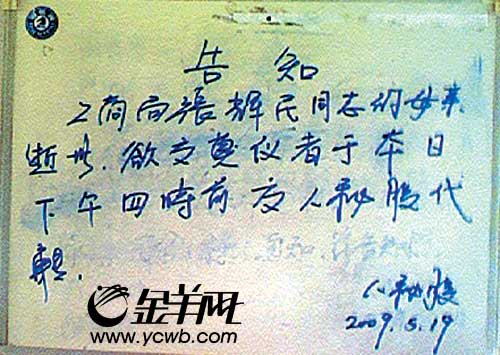 告知
工商局張輝民同志的母亲
逝世.欲交奠仪者于本日
下午四時前交人秘股代
轉.
人秘股
2009.5.19
金羊网
www.ycwb.com